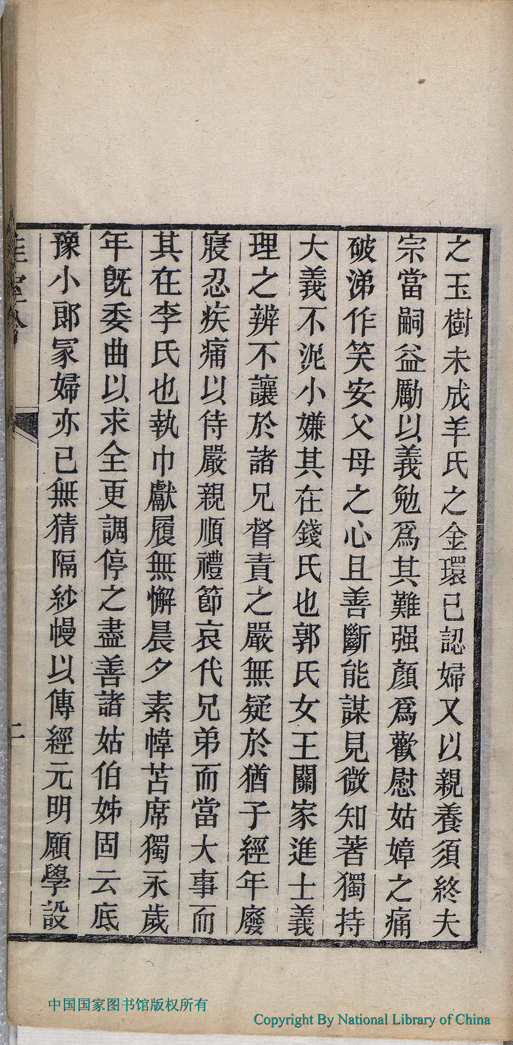 之玉樹未成羊氏之金環已認婦又以親養須終夫
宗當嗣益勵以義勉爲其難强顏爲歡慰姑嫜之痛
破涕作笑安父母之心且善斷能謀見微知著獨持
大義不泥小嫌其在錢氏也郭氏女王闗家進士義
理之辨不讓於諸兄督責之嚴無疑於猶子經年廢
寢忍疾痛以侍嚴親順禮節哀代兄弟而當大事而
其在李氏也執巾獻履無懈晨夕素幃苫席獨永歲
年旣委曲以求全更調停之盡善諸姑伯姊固云底
豫小郎冢婦亦已無猜隔紗幔以傳經元明願學設
二
中国国家图书馆版权所有
Copyright By National Library of China